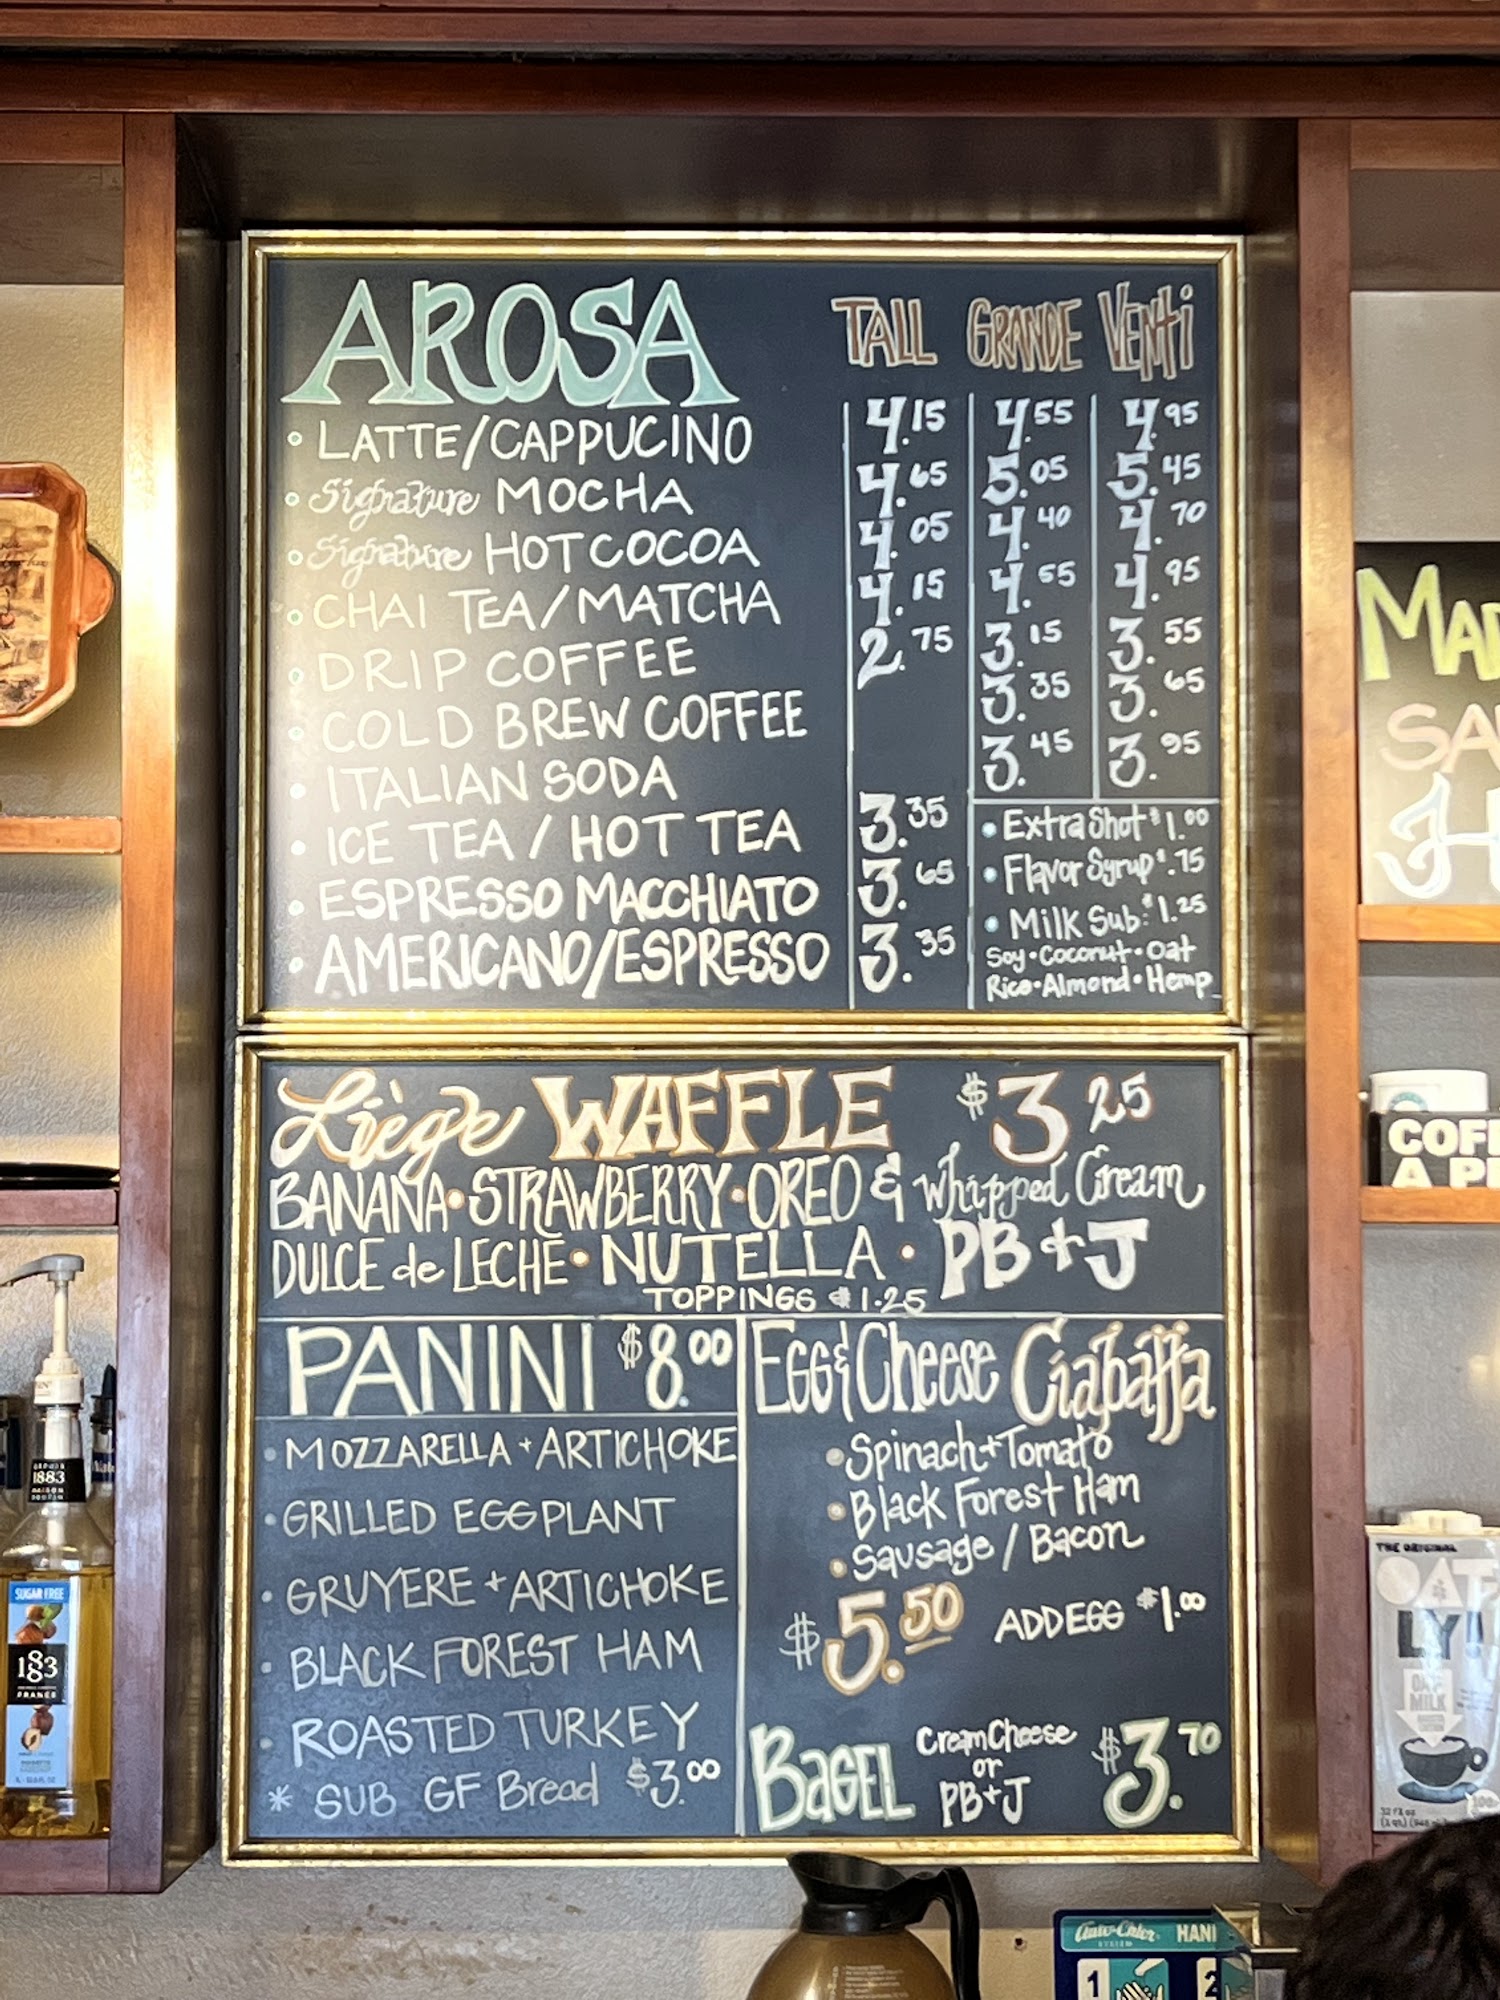 AROSA TALL GRANDE VENTI
• LATTE/CAPPUCINO 4.15 4.55 4.95
• Signature MOCHA 4.65 5.05 5.45
• Signature HOT COCOA 4.05 4.40 4.70
• CHAI TEA/MATCHA 4.15 4.55 4.95
• DRIP COFFEE 2.75 3.15 3.55
• COLD BREW COFFEE 3.35 3.65
• ITALIAN SODA 3.45 3.95
• ICE TEA / HOT TEA 3.35
• ESPRESSO MACCHIATO 3.65
• AMERICANO/ESPRESSO 3.35
• Extra Shot $1.00
• Flavor Syrup $.75
• Milk Sub: $1.25
Soy • Coconut • Oat
Rice • Almond • Hemp
Liège WAFFLE $3.25
BANANA • STRAWBERRY • OREO & Whipped Cream
DULCE de LECHE • NUTELLA • PB + J
TOPPINGS 1.25
PANINI $8.00
• MOZZARELLA + ARTICHOKE
• GRILLED EGGPLANT
• GRUYERE + ARTICHOKE
• BLACK FOREST HAM
• ROASTED TURKEY
* SUB GF Bread $3.00
EGG & Cheese Ciabatta
• Spinach + Tomato
• Black Forest Ham
• Sausage / Bacon
$5.50 ADD EGG $1.00
BAGEL Cream Cheese or PB + J $3.70
1883
SUGAR FREE
1883
FRANCE
THE ORIGINAL
OAT
LY!
OAT
MILK
HAN
1 2